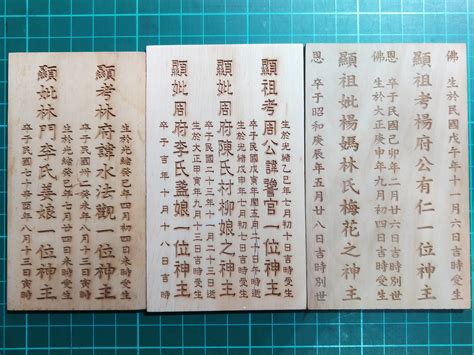 佛 生於民國戊午年十一月六日吉時受生
顯祖考楊府公有仁一位神主
卒于民國癸卯年二月廿六日吉時別世
佛 生於大正庚申年九月初四日吉時受生
顯祖妣楊媽林氏梅花之神主
恩 卒于昭和庚辰年五月廿八日吉時別世
生於光緒乙巳年七月初七日吉時受生
顯祖考周公諱警官一位神主
卒于民國年閏五月三十日午時逝
生於光緒戊申年七月初九日吉時受生
顯妣周府陳氏村柳娘之神主
卒于民國二十年九月十三日
生於大正甲寅年九月十三日吉時受生
顯妣周府李氏蓋娘一位神主
卒于吉年十月十八日吉時
生於光緒癸巳年四月初四日未時受生
顯考林府諱水法觀一位神主
卒于民國癸未年八月十三日
生於光緒癸巳年
顯妣林門李氏姜娘一位神主
卒于民國七十年八月十三日寅時